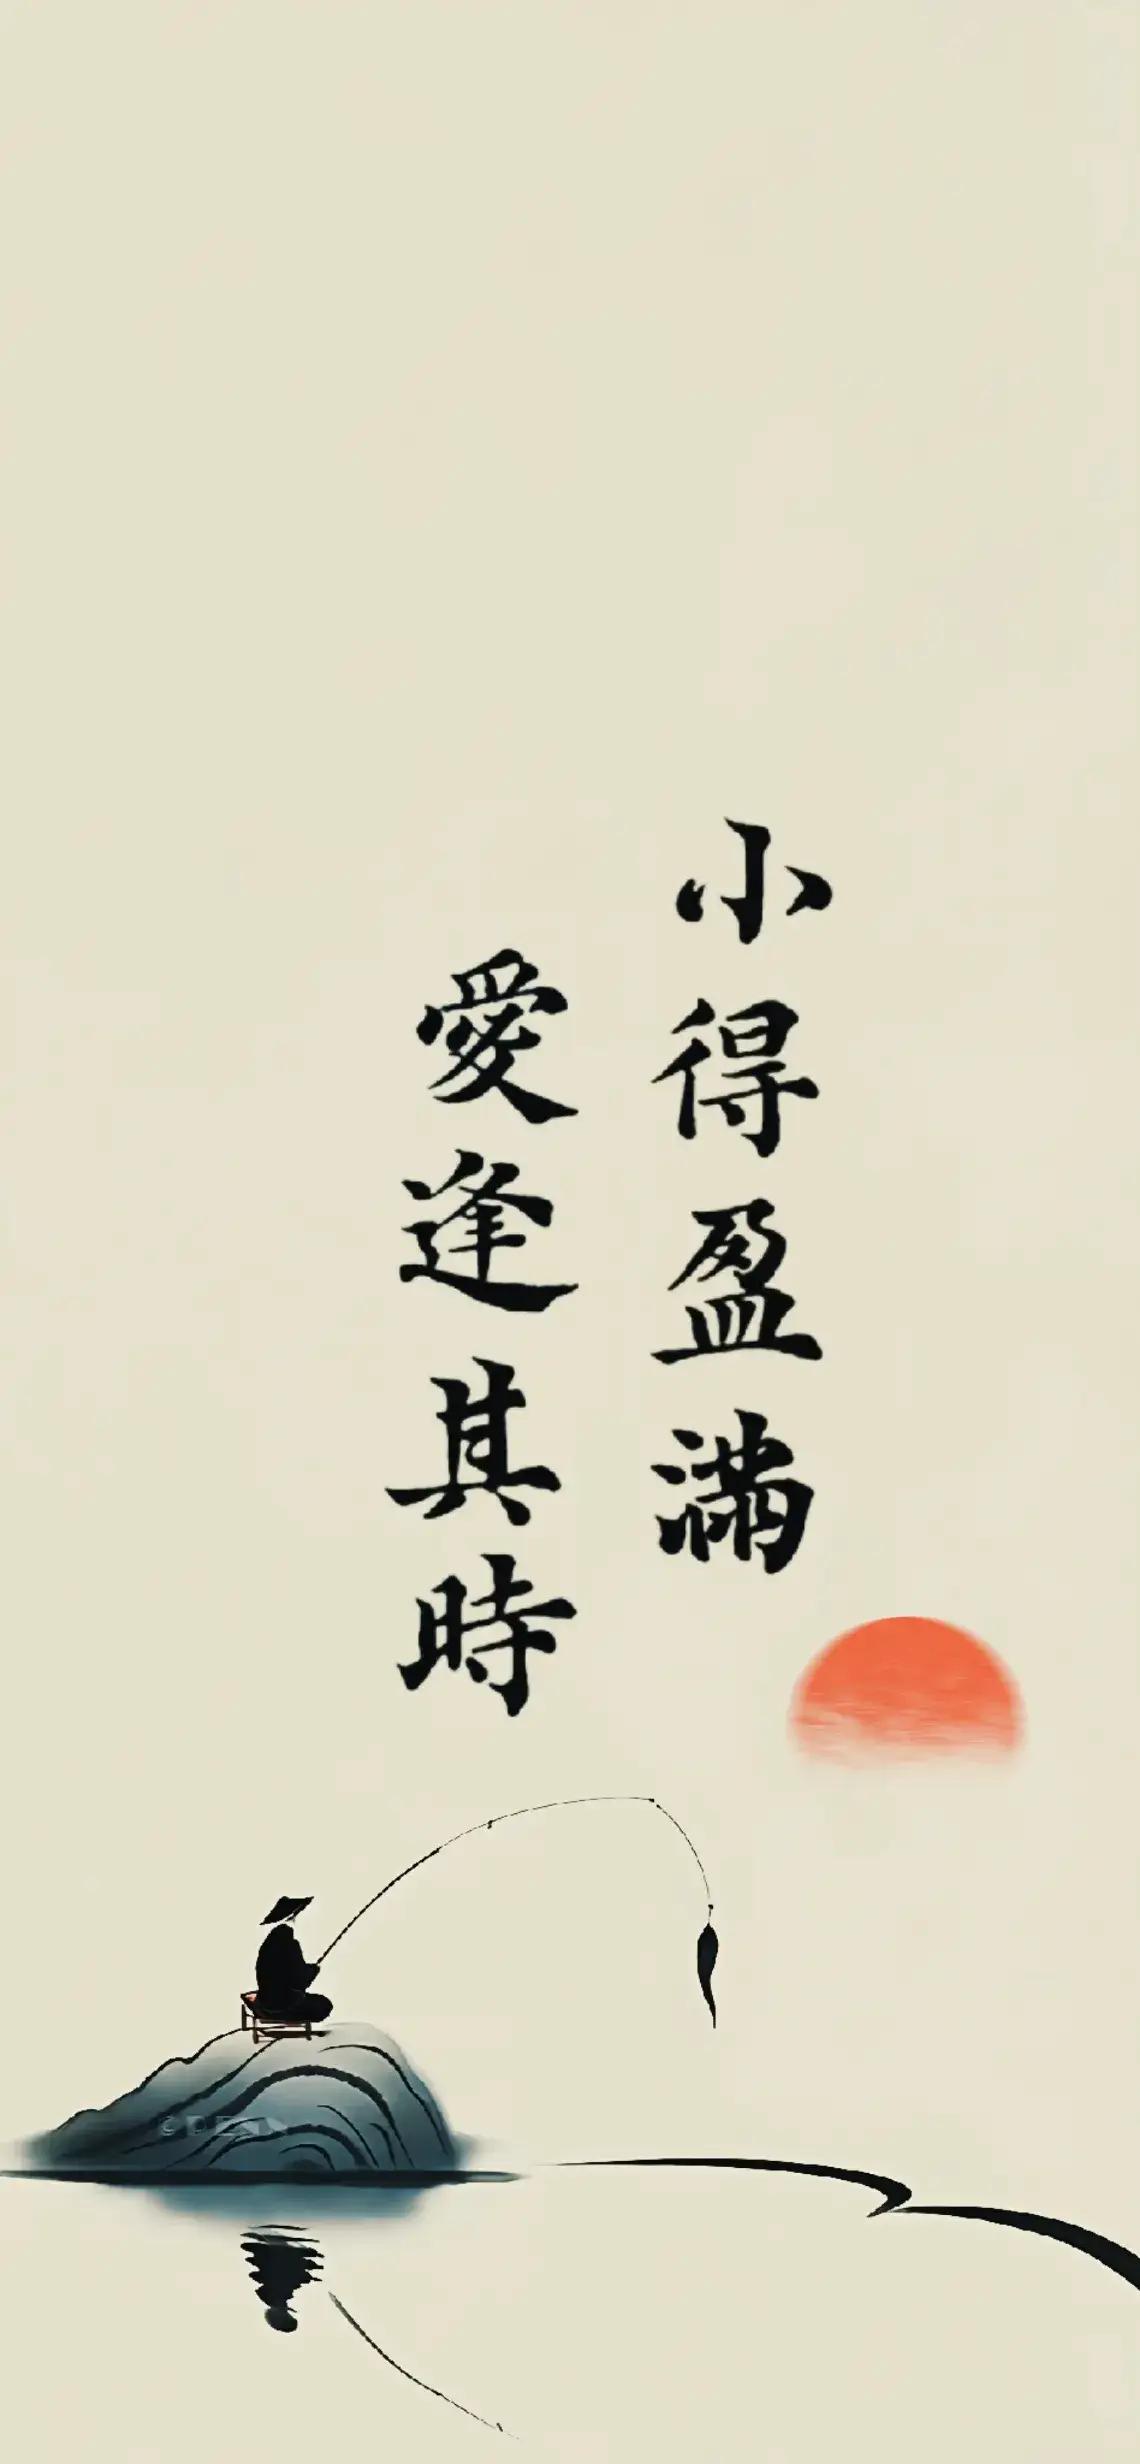 小得盈滿
愛逢其時